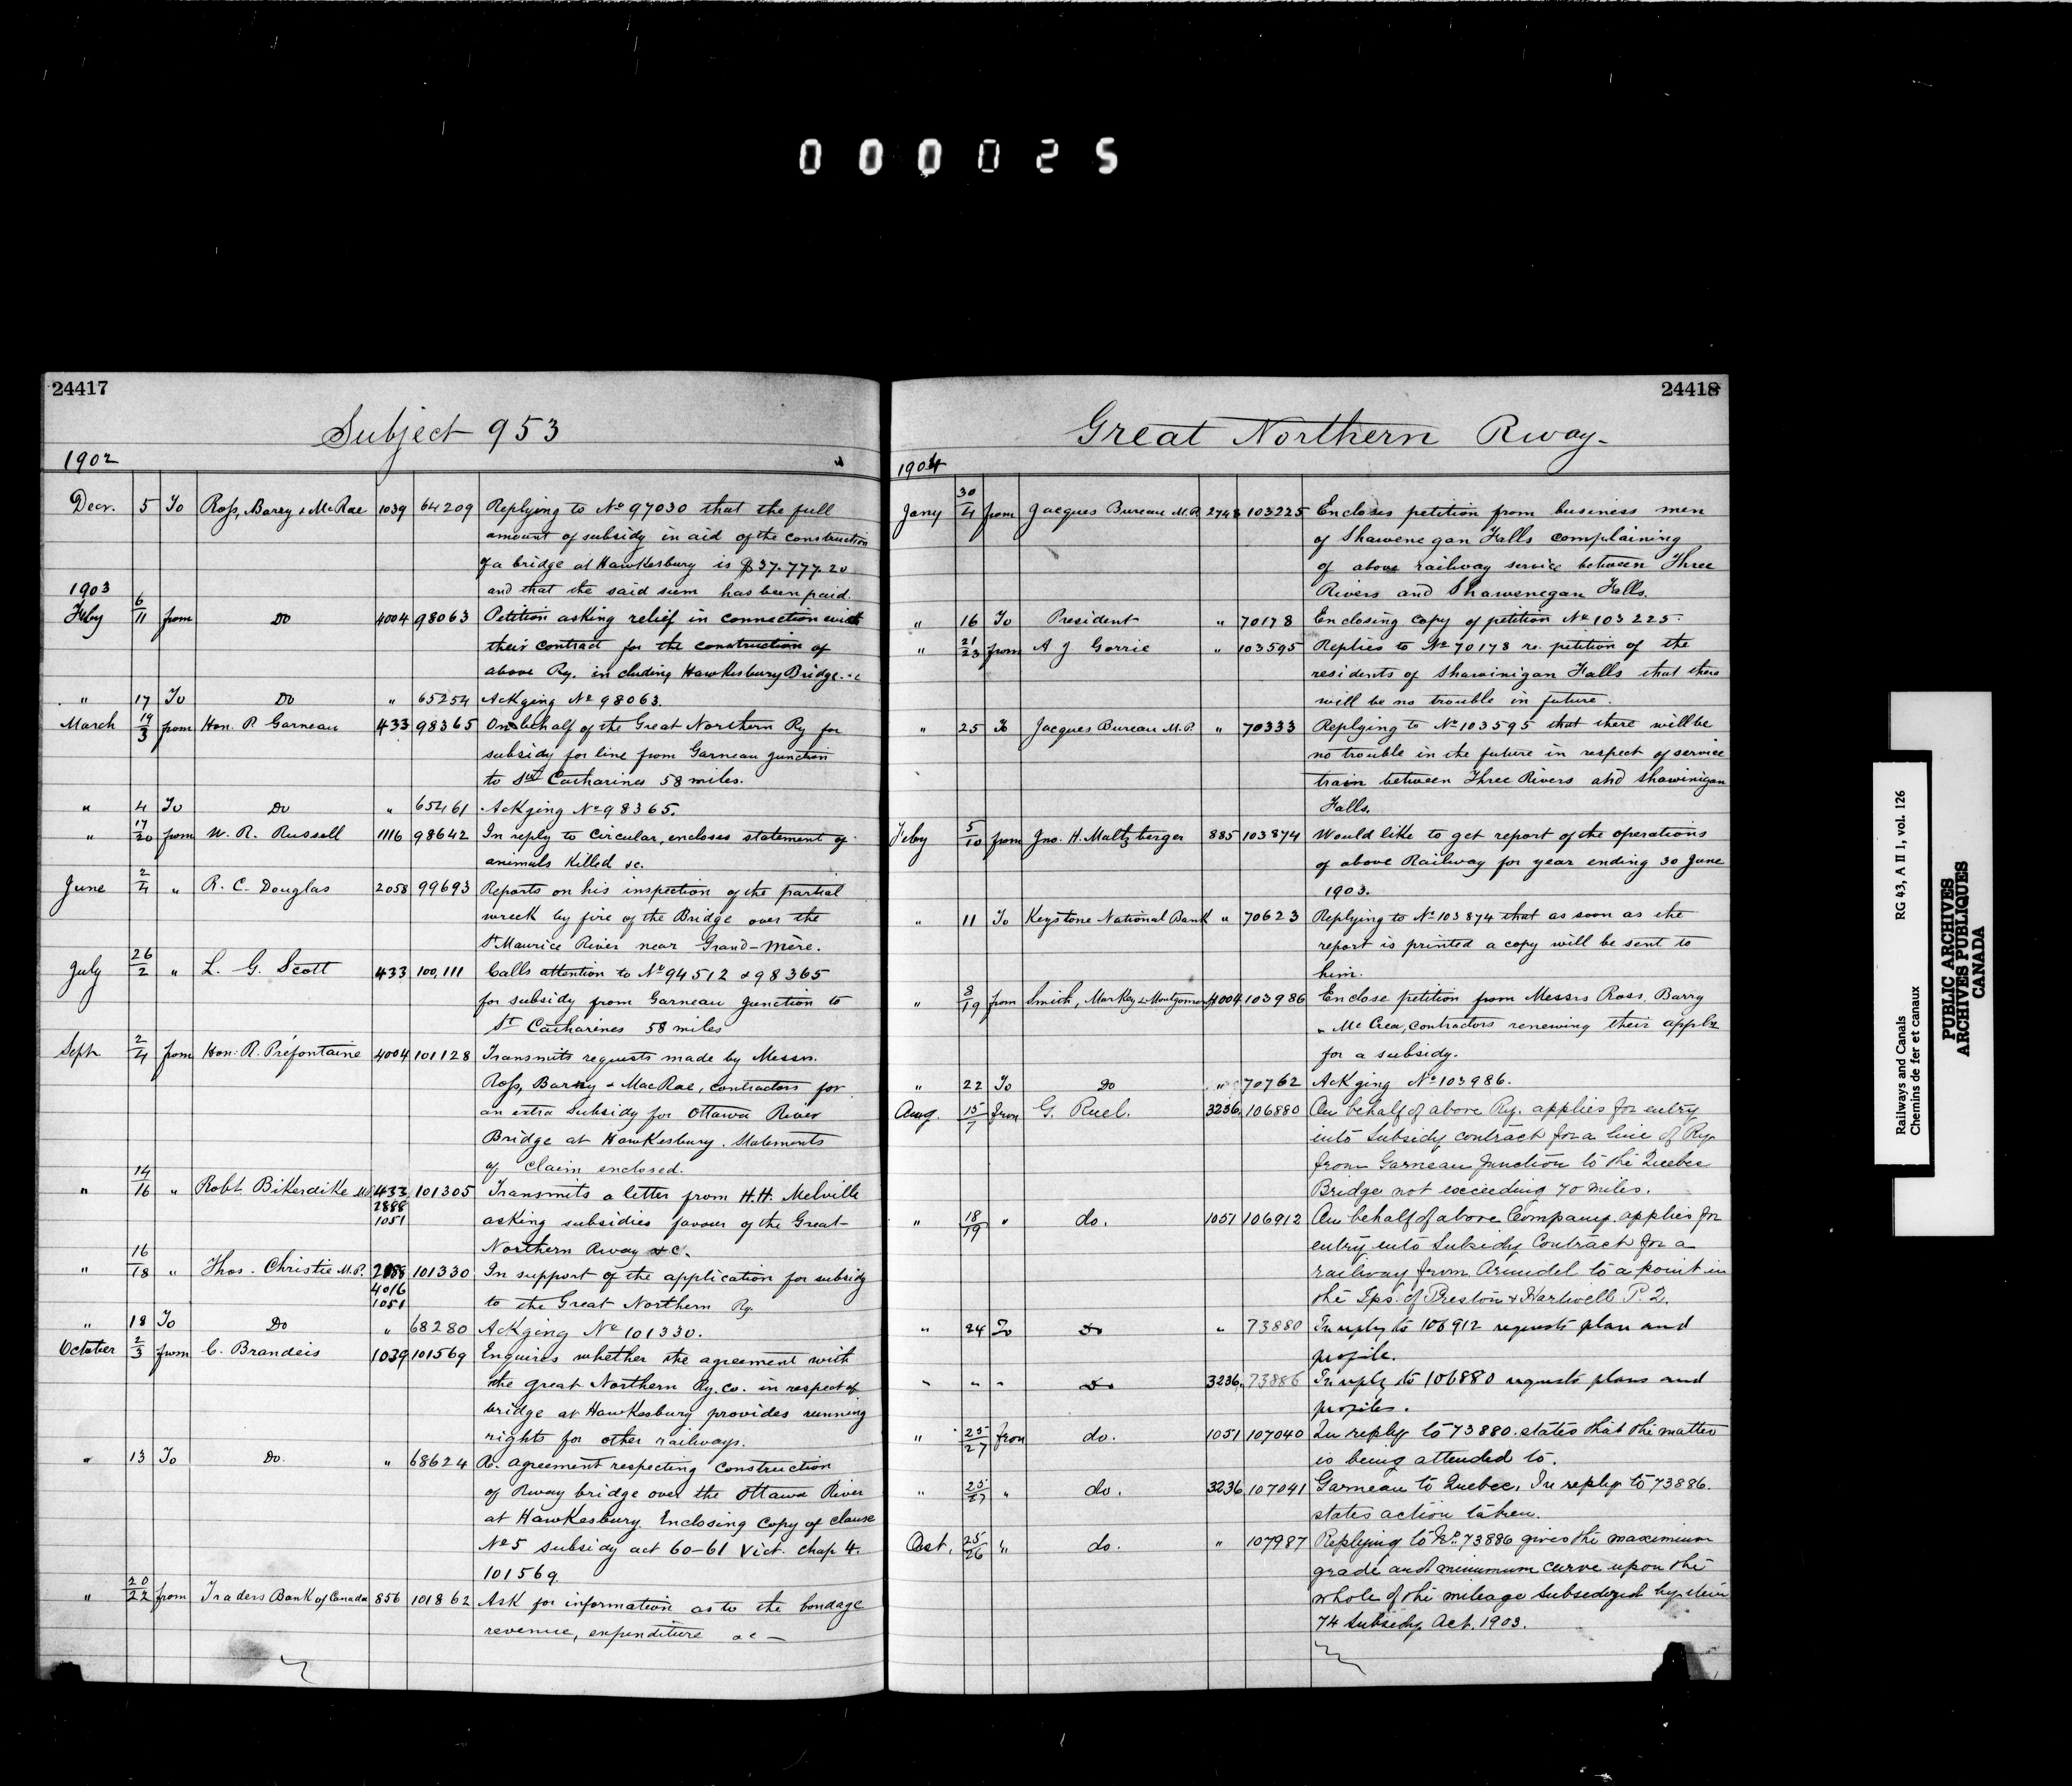 000025
24417
Subject 953
1902
Decr. 5 To Ross, Barry & McRae 1039 64209 Replying to No 97030 that the full
amount of subsidy in aid of the construction
of a bridge at Hawkesbury is $37.777.20
and that the said sum has been paid.
1903
Feby 6/11 from Do 4004 98063 Petition asking relief in connection with
their contract for the construction of
above Ry. including Hawkesbury Bridge &c
" 17 To Do " 65254 Ackging No 98063.
March 19/3 from Hon. P. Garneau 433 98365 On behalf of the Great Northern Ry for
subsidy for line from Garneau Junction
to St Catharines 58 miles.
" 4 To Do " 65461 Ackging No 98365.
" 17/20 from W. R. Russell 1116 98642 In reply to Circular, encloses statement of
animals killed &c.
June 2/4 " R. C. Douglas 2058 99693 Reports on his inspection of the partial
wreck by fire of the Bridge over the
St Maurice River near Grand-Mère.
July 26/2 " L. G. Scott 433 100,111 Calls attention to No 94512 & 98365
for subsidy from Garneau Junction to
St Catharines 58 miles
Sept 2/4 from Hon. R. Préfontaine 4004 101128 Transmits requests made by Messrs.
Ross, Barry & MacRae, contractors for
an extra subsidy for Ottawa River
Bridge at Hawkesbury. Statements
of claim enclosed.
" 14/16 " Robt Bikerdike M.P. 433 101305 Transmits a letter from H.H. Melville
2888
1051 asking subsidies favour of the Great
Northern Rway &c.
" 16/18 " Thos. Christie M.P. 2888 101330 In support of the application for subsidy
4016
1051 to the Great Northern Ry.
" 18 To Do " 68280 Ackging No 101330.
October 2/3 from C. Brandeis 1039 101569 Enquires whether the agreement with
the great Northern Ry. Co. in respect of
bridge at Hawkesbury provides running
rights for other railways.
" 13 To Do. " 68624 Re. agreement respecting construction
of Rway bridge over the Ottawa River
at Hawkesbury. Enclosing copy of clause
No 5 subsidy act 60-61 Vict. Chap 4.
101569
" 20/22 from Traders Bank of Canada 856 101862 Ask for information as to the bondage
revenue, expenditure &c —
24418
Great Northern Rway-
1904
Jany 30/4 from Jacques Bureau M.P. 2748 103225 Encloses petition from business men
of Shawenegan Falls complaining
of above railway service between Three
Rivers and Shawenegan Falls.
" 16 To President " 70178 Enclosing copy of petition No 103225.
" 21/23 from A J Gorrie " 103595 Replies to No 70178 re. petition of the
residents of Shawinigan Falls that there
will be no trouble in future.
" 25 To Jacques Bureau M.P. " 70333 Replying to No 103595 that there will be
no trouble in the future in respect of service
train between Three Rivers and Shawinigan
Falls.
Feby 5/10 from Jno. H. Maltzberger 885 103874 Would like to get report of the operations
of above Railway for year ending 30 June
1903.
" 11 To Keystone National Bank " 70623 Replying to No 103874 that as soon as the
report is printed a copy will be sent to
him.
" 8/19 from Smith, Markey & Montgomery 4004 103986 Enclose petition from Messrs Ross, Barry
& McCrea, contractors renewing their appln
for a subsidy.
" 22 To Do " 70762 Ackging No 103986.
Aug. 15/7 from G. Ruel. 3236 106880 On behalf of above Ry. applies for entry
into Subsidy contract for a line of Ry.
from Garneau Junction to the Quebec
Bridge not exceeding 70 miles.
" 18/19 " do. 1051 106912 On behalf of above Company applies for
entry into Subsidy Contract for a
railway from Arundel to a point in
the Tps. of Preston & Hartwell P.Q.
" 24 To Do " 73880 In reply to 106912 requests plan and
profile.
" " " Do 3236 73886 In reply to 106880 requests plans and
profiles.
" 25/27 from do. 1051 107040 In reply to 73880. states that the matter
is being attended to.
" 25/27 " do. 3236 107041 Garneau to Quebec, In reply to 73886.
states action taken.
Oct. 25/26 " do. " 107987 Replying to No. 73886 gives the maximum
grade and minimum curve upon the
whole of the mileage subsidized by item
74 Subsidy Act. 1903.
Railways and Canals RG 43, A II 1, vol. 126
Chemins de fer et canaux
PUBLIC ARCHIVES
ARCHIVES PUBLIQUES
CANADA